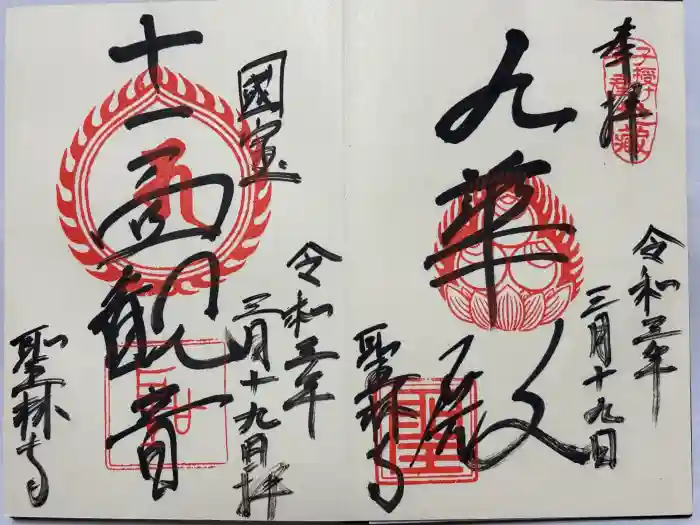 奉拝
子授け
地蔵
令和三年
三月十九日
九華殿
聖林寺
国宝
十一面観音
令和三年
三月十九日拝
聖林寺